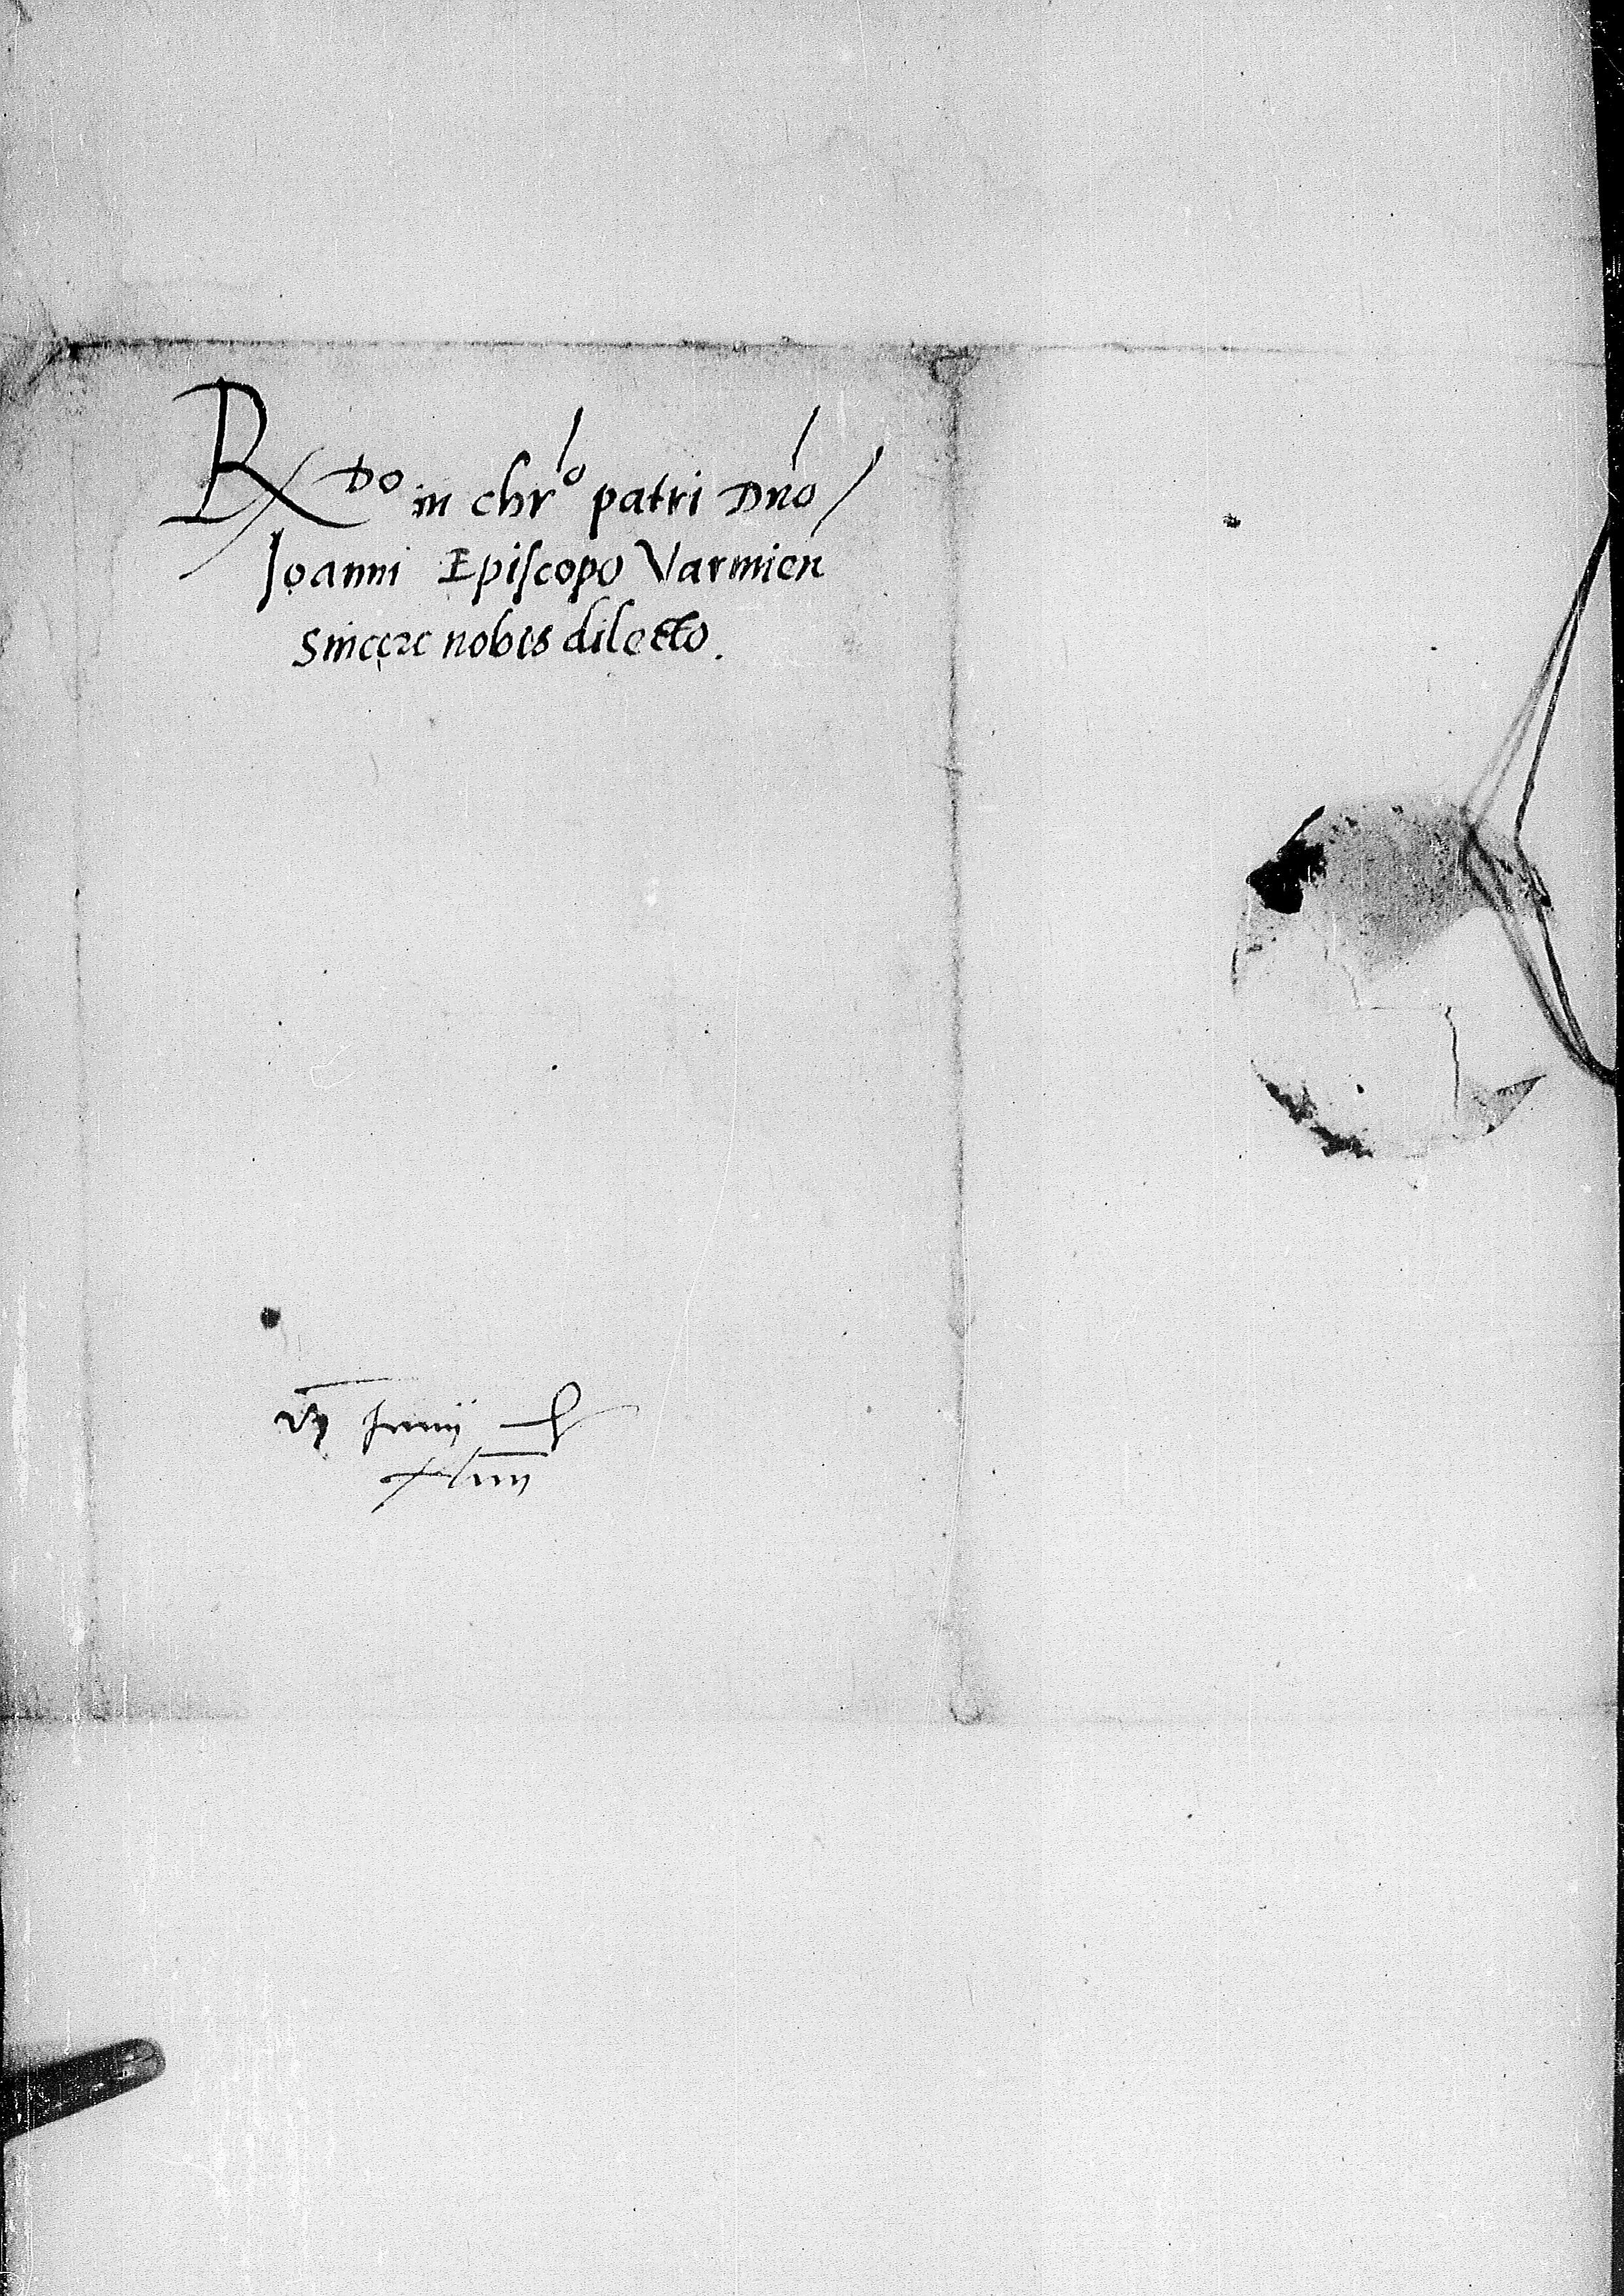 R^do in chr^o patri Dno
Joanni Episcopo Varmien
sincere nobis dilecto.
Junij
xliiij